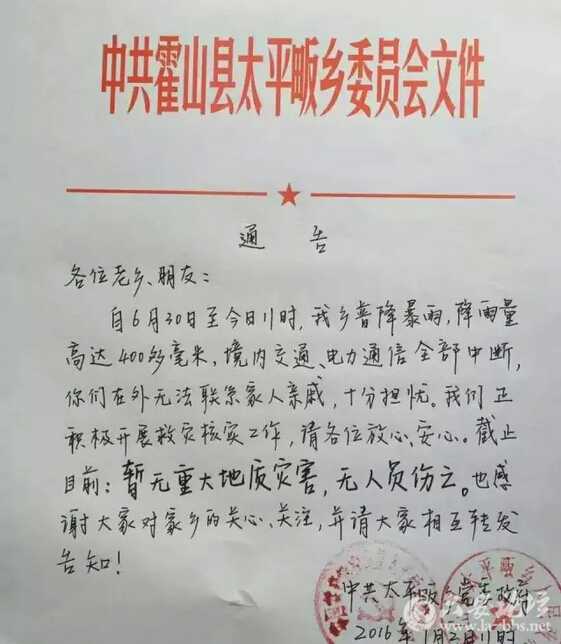 中共霍山县太平畈乡委员会文件
通 告
各位老乡、朋友：
自6月30日至今日11时，我乡普降暴雨，降雨量
高达400多毫米，境内交通、电力通信全部中断，
你们在外无法联系家人亲戚，十分担忧。我们正
积极开展救灾核实工作，请各位放心、安心。截止
目前：暂无重大地质灾害，无人员伤亡。也感
谢大家对家乡的关心、关注，并请大家相互转发
告知！
中共太平畈乡党委政府
2016年7月2日11时
六安论坛
www.lazbbs.net